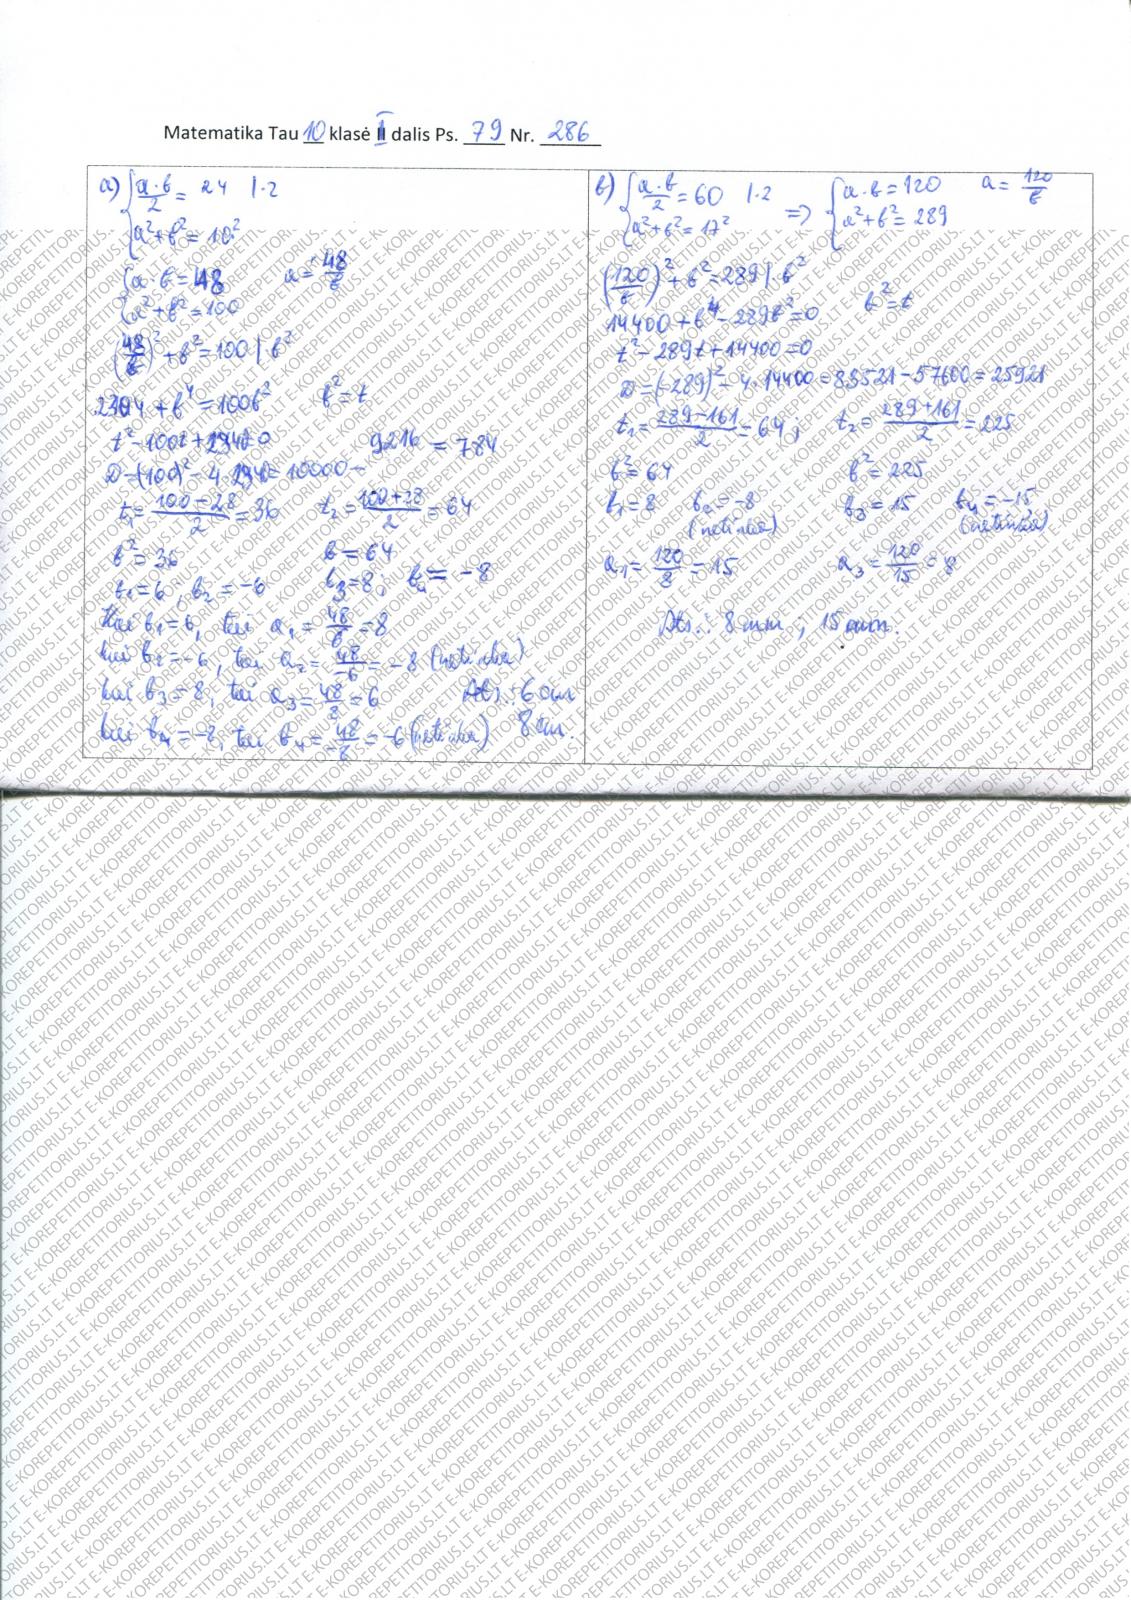 Matematika Tau 10 klasė I dalis Ps. 79 Nr. 286
a) { a·b/2 = 24 |·2
a²+b² = 10²
{ a·b = 48 a = 48/b
a²+b² = 100
(48/b)² + b² = 100 |·b²
2304 + b⁴ = 100b² b² = t
t² - 100t +
9216 = 784
t₁ = (100-28)/2 = 36 t₂ = (100+28)/2 = 64
b² = 36 b = 64
b₁ = 6, b₂ = -6 b₃ = 8; b₄ = -8
kai b₁ = 6, tai a₁ = 48/6 = 8
kai b₂ = -6, tai a₂ = 48/-6 = -8 (netinka)
kai b₃ = 8, tai a₃ = 48/8 = 6 Ats.: 6 cm
kai b₄ = -8, tai b₄ = 48/-8 = -6 (netinka) 8 cm.
b) { a·b/2 = 60 |·2 => { a·b = 120 a = 120/b
a²+b² = 17² a²+b² = 289
(120/b)² + b² = 289 |·b²
14400 + b⁴ - 289b² = 0 b² = t
t² - 289t + 14400 = 0
D = (-289)² - 4·14400 = 83521 - 57600 = 25921
t₁ = (289-161)/2 = 64; t₂ = (289+161)/2 = 225
b² = 64 b² = 225
b₁ = 8 b₂ = -8 b₃ = 15 b₄ = -15
(netinka) (netinka)
a₁ = 120/8 = 15 a₃ = 120/15 = 8
Ats.: 8 mm, 15 mm.
E-KOREPETITORIUS.LT